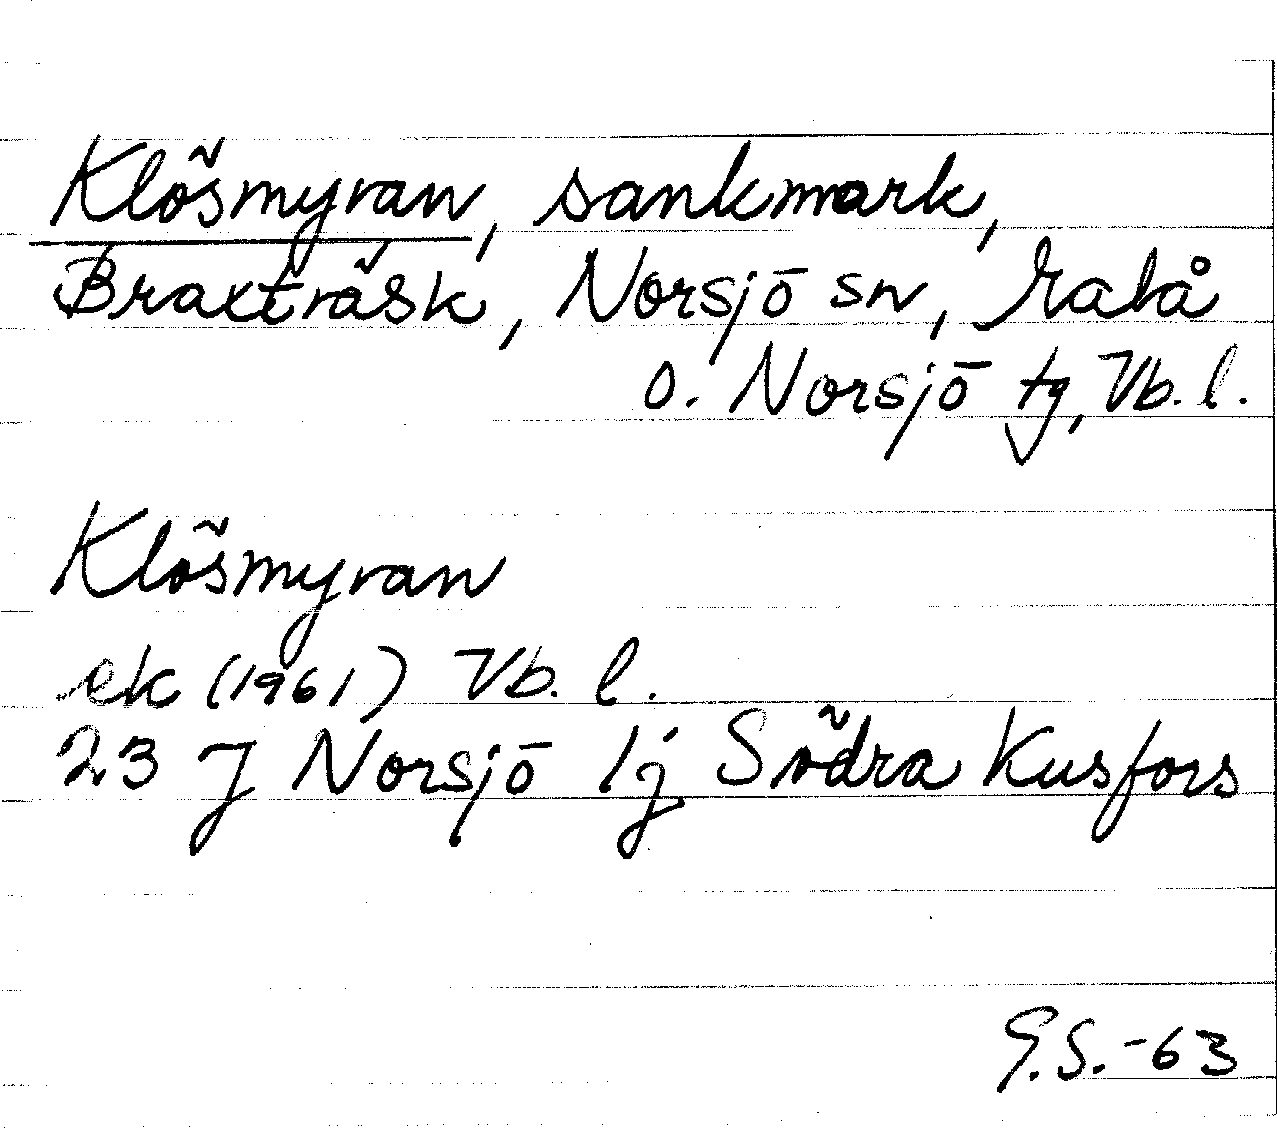 Klösmyran, sankmark,
Braxträsk, Norsjö sn, Malå
o. Norsjö tg, Vb. l.
Klösmyran
ek (1961) Vb. l.
23 J Norsjö 1j Södra Kusfors
G.S.-63